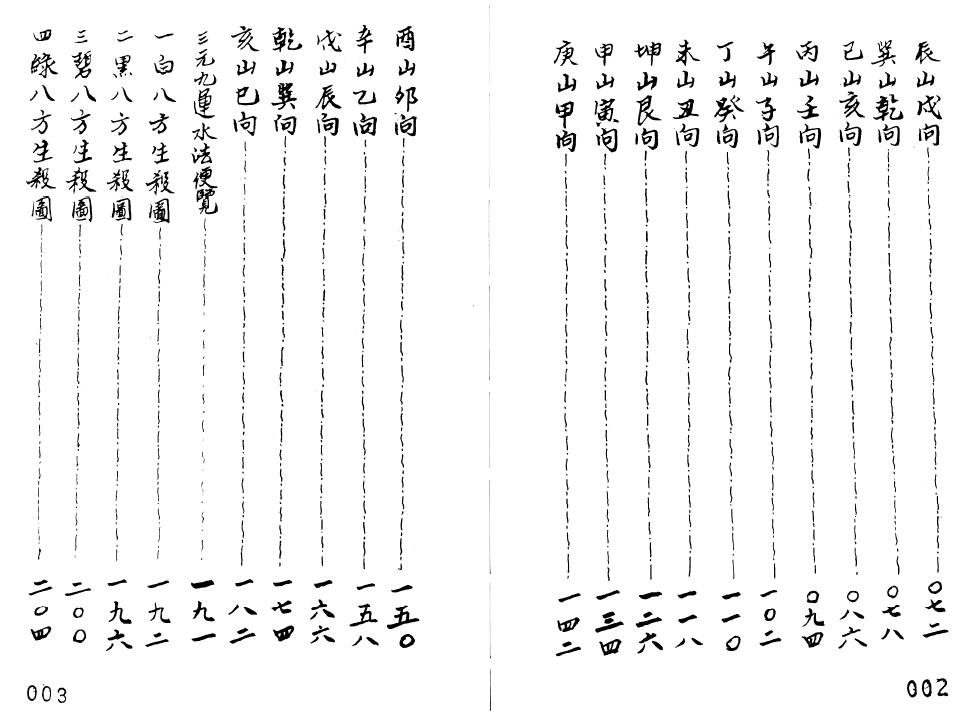 辰山戌向 ○七二
巽山乾向 ○七八
巳山亥向 ○八六
丙山壬向 ○九四
午山子向 一○二
丁山癸向 一一○
未山丑向 一一八
坤山艮向 一二六
申山寅向 一三四
庚山甲向 一四二
002
酉山卯向 一五○
辛山乙向 一五八
戌山辰向 一六六
乾山巽向 一七四
亥山巳向 一八二
三元九運水法便覽 一九一
一白八方生殺圖 一九二
二黑八方生殺圖 一九六
三碧八方生殺圖 二○○
四綠八方生殺圖 二○四
003